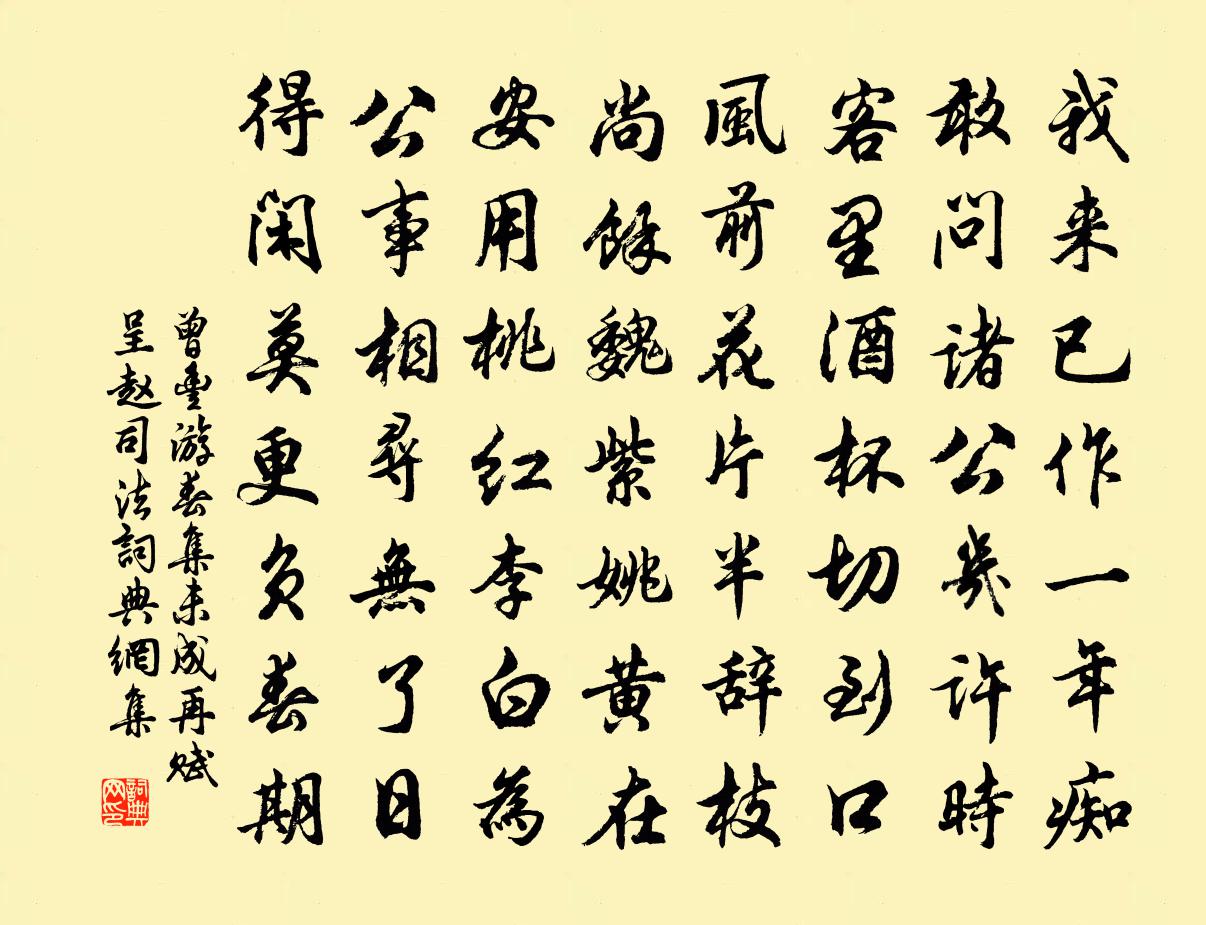 我来已作一年痴
敢问诸公几许時
客里酒杯切到口
風前花片半辞枝
尚餘魏紫姚黄在
安用桃红李白為
公事相尋無了日
得闲莫更负春期
曾豊游春集未成再赋
呈赵司法詞典網集
詞典
网印